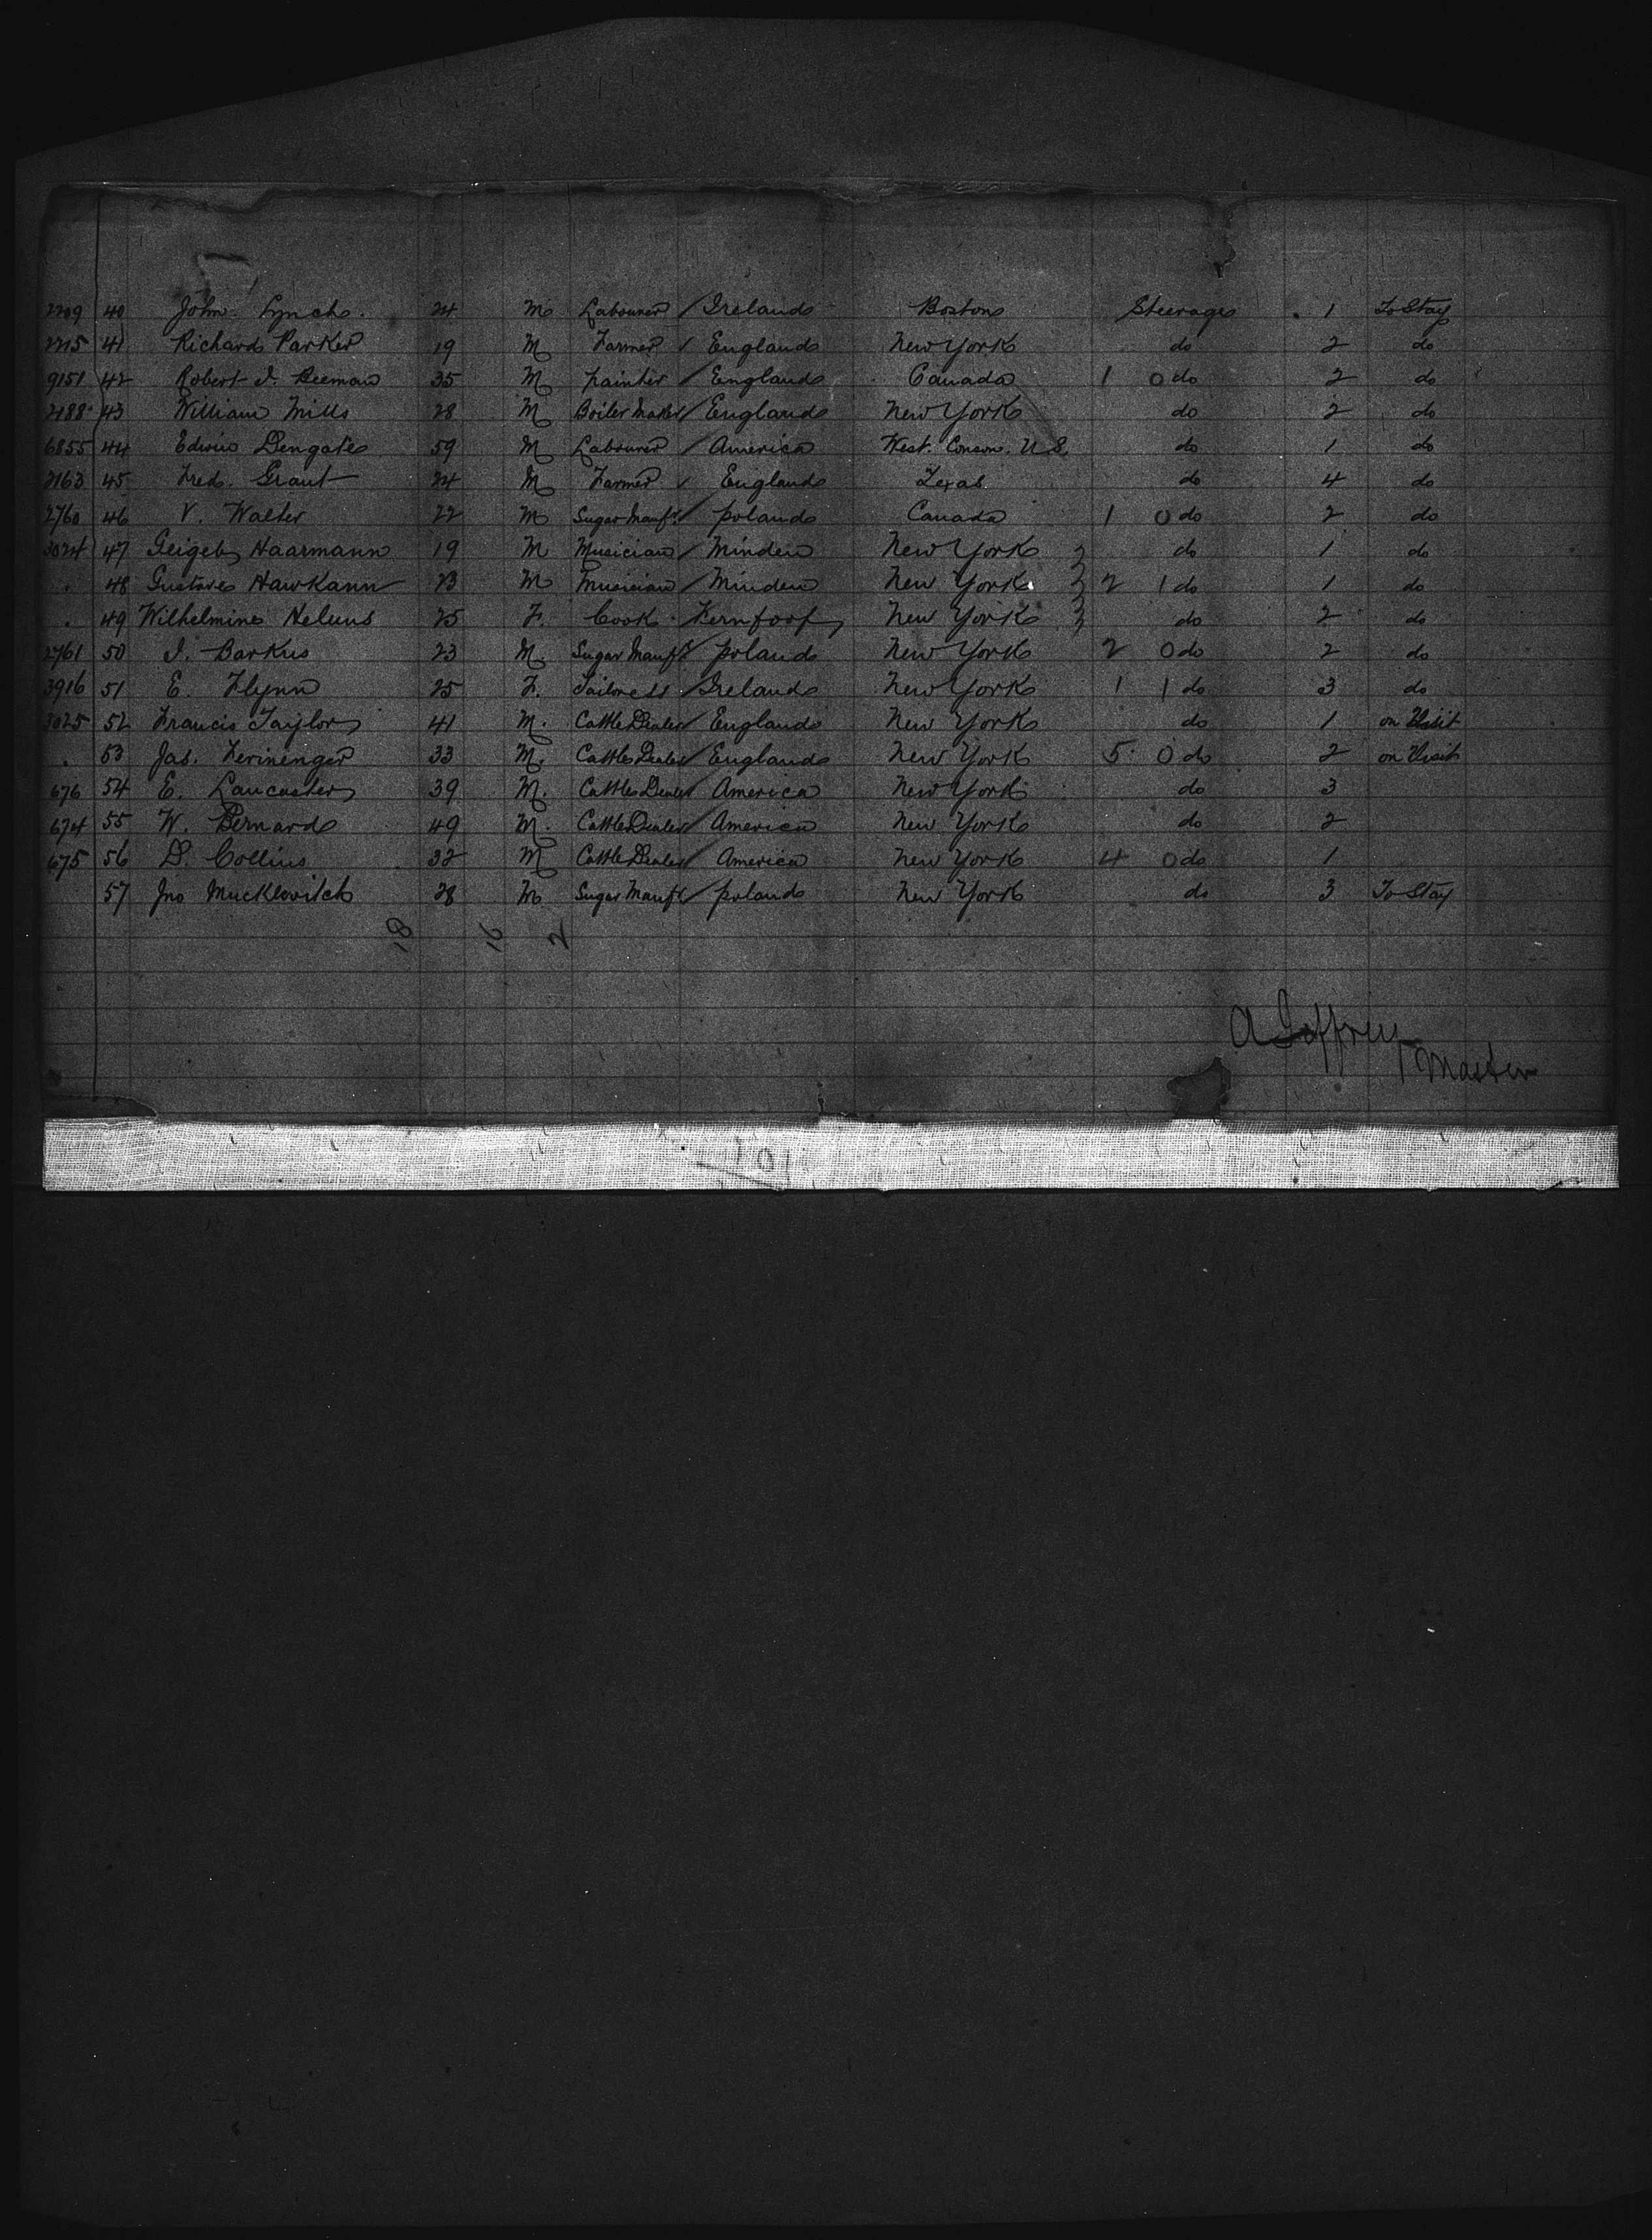 2209 40 John Lynch. 24 M Labourer / Ireland Boston Steerage 1 To Stay
2215 41 Richard Parker 19 M Farmer / England New York do 2 do
9151 42 Robert J. Beeman 35 M painter / England Canada 1 0 do 2 do
2188 43 William Mills 28 M Boiler Maker / England New York do 2 do
6855 44 Edwin Dengate 59 M Labourer / America West. Conson. U S. do 1 do
2163 45 Fred. Grant 24 M Farmer / England Texas do 4 do
2760 46 V. Walter 22 M Sugar Manfr / poland Canada 1 0 do 2 do
3024 47 Haarmann 19 M Musician / Minden New York do 1 do
" 48 Gustave Hawkann 23 M Musician / Minden New York 2 1 do 1 do
" 49 Wilhelmine 25 F. Cook New York do 2 do
2761 50 J. Barkus 23 M. Sugar Manfr / poland New York 2 0 do 2 do
3916 51 E. Flynn 25 F. Tailoress / Ireland New York 1 1 do 3 do
3025 52 Francis Taylor 41 M. Cattle Dealer / England New York do 1 on Visit
" 53 Jas. 33 M. Cattle Dealer / England New York 5 0 do 2 on Visit
676 54 E. Lancaster 39 M. Cattle Dealer America New York do 3
674 55 W. Bernard 49 M. Cattle Dealer / America New York do 2
675 56 D. Collins 32 M Cattle Dealer / America New York 4 0 do 1
57 Jno Mucklovitch 28 M Sugar Manfr / poland New York do 3 To Stay
18 16 2
Master
101